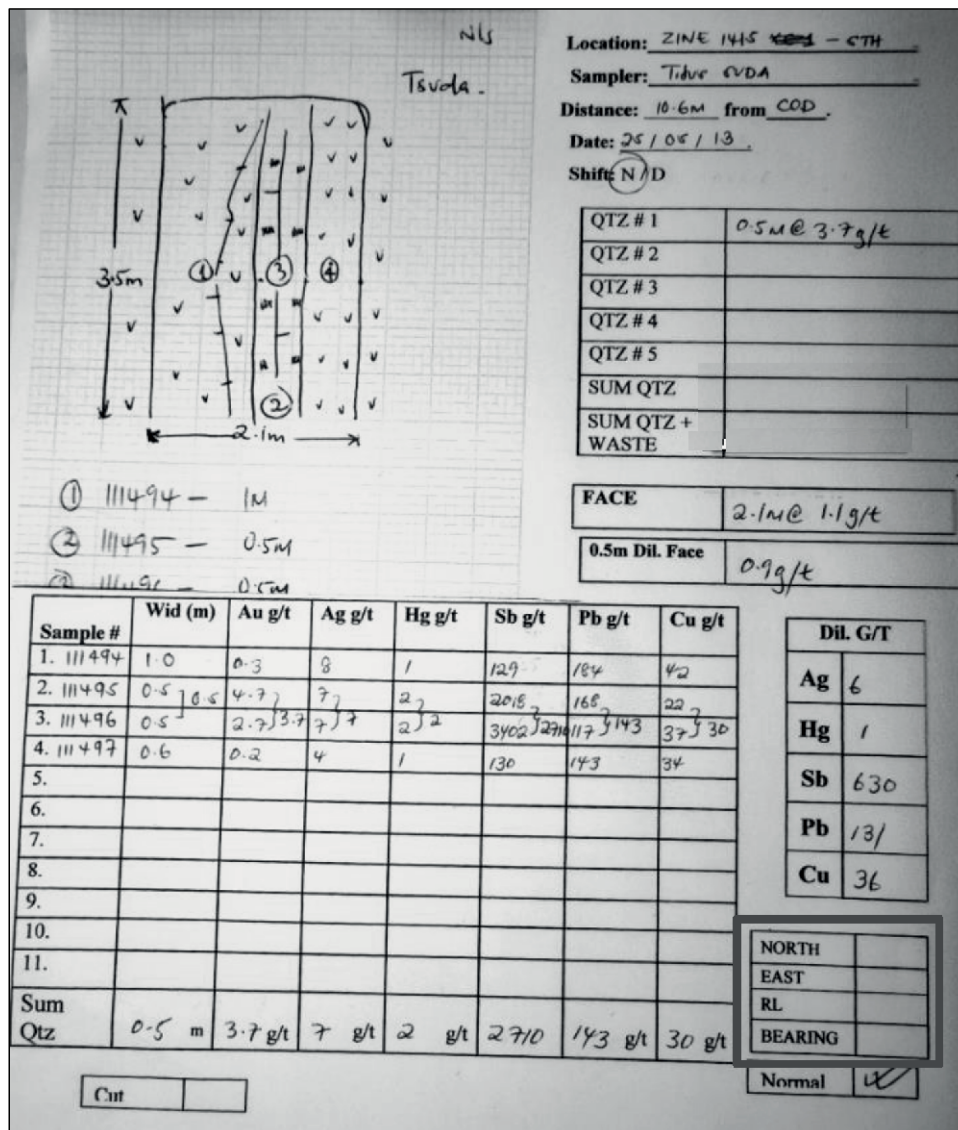 NLS
Tsvda.
Location: ZINE 1415 - STH
Sampler: SVDA
Distance: 10.6M from COD.
Date: 25/05/13.
Shift: N/D
3.5m
1
3
4
2
2.1m
① 111494 - 1M
② 111495 - 0.5M
③ 111496 - 0.5M
QTZ # 1 0.5M@ 3.7g/t
QTZ # 2
QTZ # 3
QTZ # 4
QTZ # 5
SUM QTZ
SUM QTZ +
WASTE
FACE 2.1M@ 1.1g/t
0.5m Dil. Face 0.9g/t
Sample # Wid (m) Au g/t Ag g/t Hg g/t Sb g/t Pb g/t Cu g/t
1. 111494 1.0 0.3 8 1 129 184 42
2. 111495 0.5 ] 0.5 4.7 7 2 2018 168 22
3. 111496 0.5 2.7 } 3.7 7 } 7 2 } 2 3402 } 2710 117 } 143 37 } 30
4. 111497 0.6 0.2 4 1 130 143 34
5.
6.
7.
8.
9.
10.
11.
Sum
Qtz 0.5 m 3.7 g/t 7 g/t 2 g/t 2710 143 g/t 30 g/t
Dil. G/T
Ag 6
Hg 1
Sb 630
Pb 131
Cu 36
NORTH
EAST
RL
BEARING
Normal
Cut